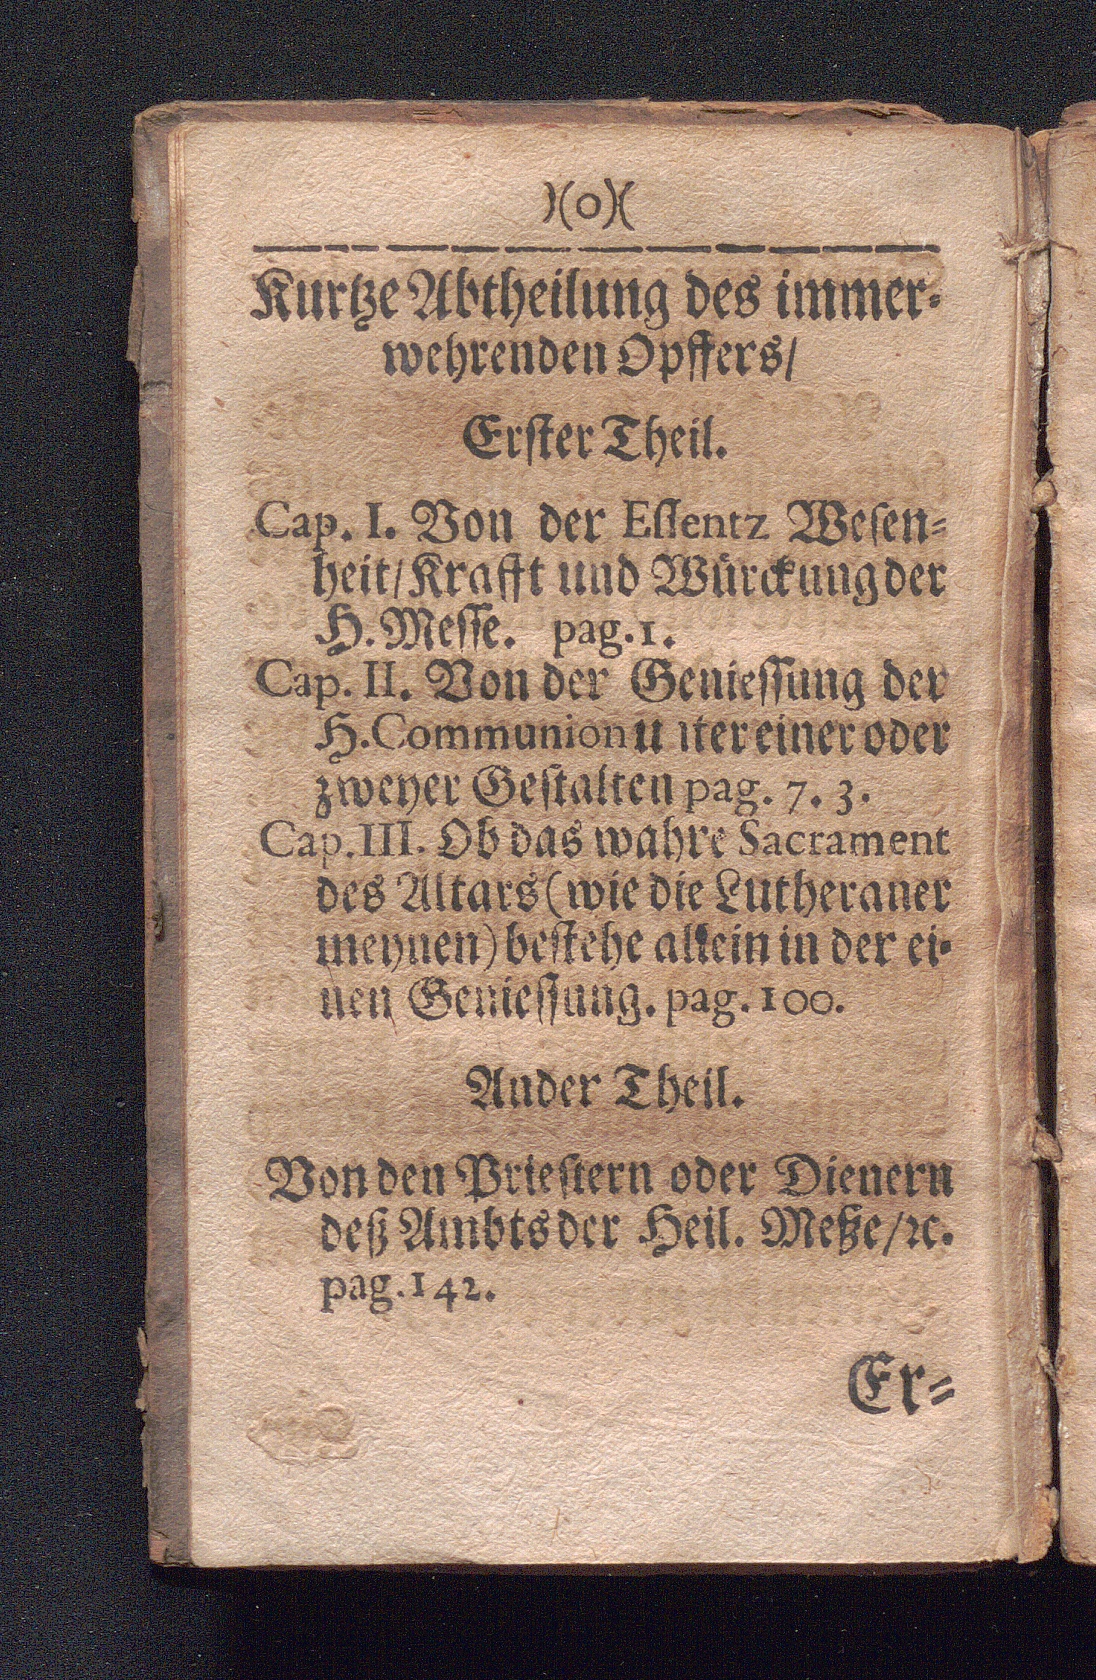 )(o)(
Kurtze Abtheilung des immer-
wehrenden Opffers/
Erſter Theil.
Cap. I. Von der Eſſentz Weſen-
heit/ Krafft und Würckung der
H. Meſſe. pag. 1.
Cap. II. Von der Genieſſung der
H. Communion unter einer oder
zweyer Geſtalten pag. 7. 3.
Cap. III. Ob das wahre Sacrament
des Altars (wie die Lutheraner
meynen) beſtehe allein in der ei-
nen Genieſſung. pag. 100.
Ander Theil.
Von den Prieſtern oder Dienern
deß Ambts der Heil. Meße/ ꝛc.
pag. 142.
Er-